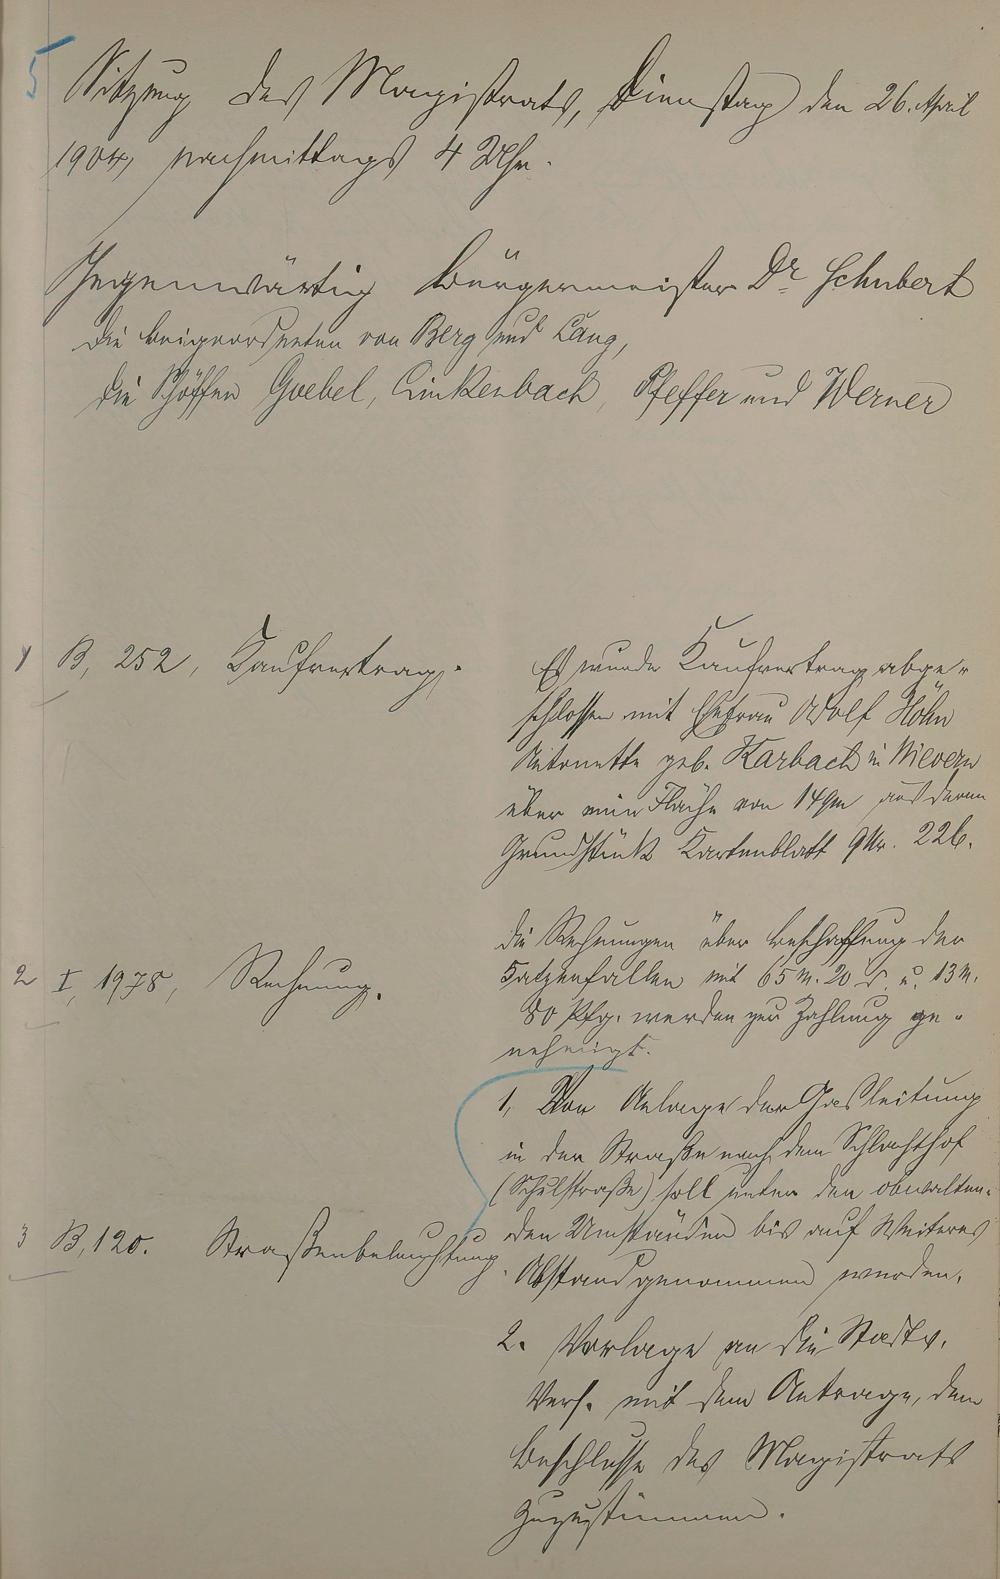 5
Sitzung des Magistrats, Dienstag den 26. April
1904, nachmittags 4 Uhr.
Gegenwärtig Bürgermeister Dr. Schubert
die Beigeordneten von Berg und Lang,
die Schöffen Goebel, Linkenbach, Pfeffer und Werner
1 B, 252, Kaufvertrag.
Es wurde Kaufvertrag abge-
schlossen mit Ehefrau Adolf Höhn
Antonette geb. Karbach in Nievern
über eine Fläche von 14qm aus deren
Grundstück Kartenblatt 9 Nr. 226.
2 I, 1978, Rechnung.
Die Rechnungen über Beschaffung der
Katzenfallen mit 65 M. 20 u. 13 M.
80 Pfg. werden zur Zahlung ge-
nehmigt.
3 B, 120. Straßenbeleuchtung.
1, Von Anlage der Gasleitung
in der Straße nach dem Schlachthof
(Schulstraße) soll unter den obwalten-
den Umständen bis auf Weiteres
Abstand genommen werden.
2. Vorlage an die Stadtv.
Vers. mit dem Antrage, dem
Beschlusse des Magistrats
zuzustimmen.